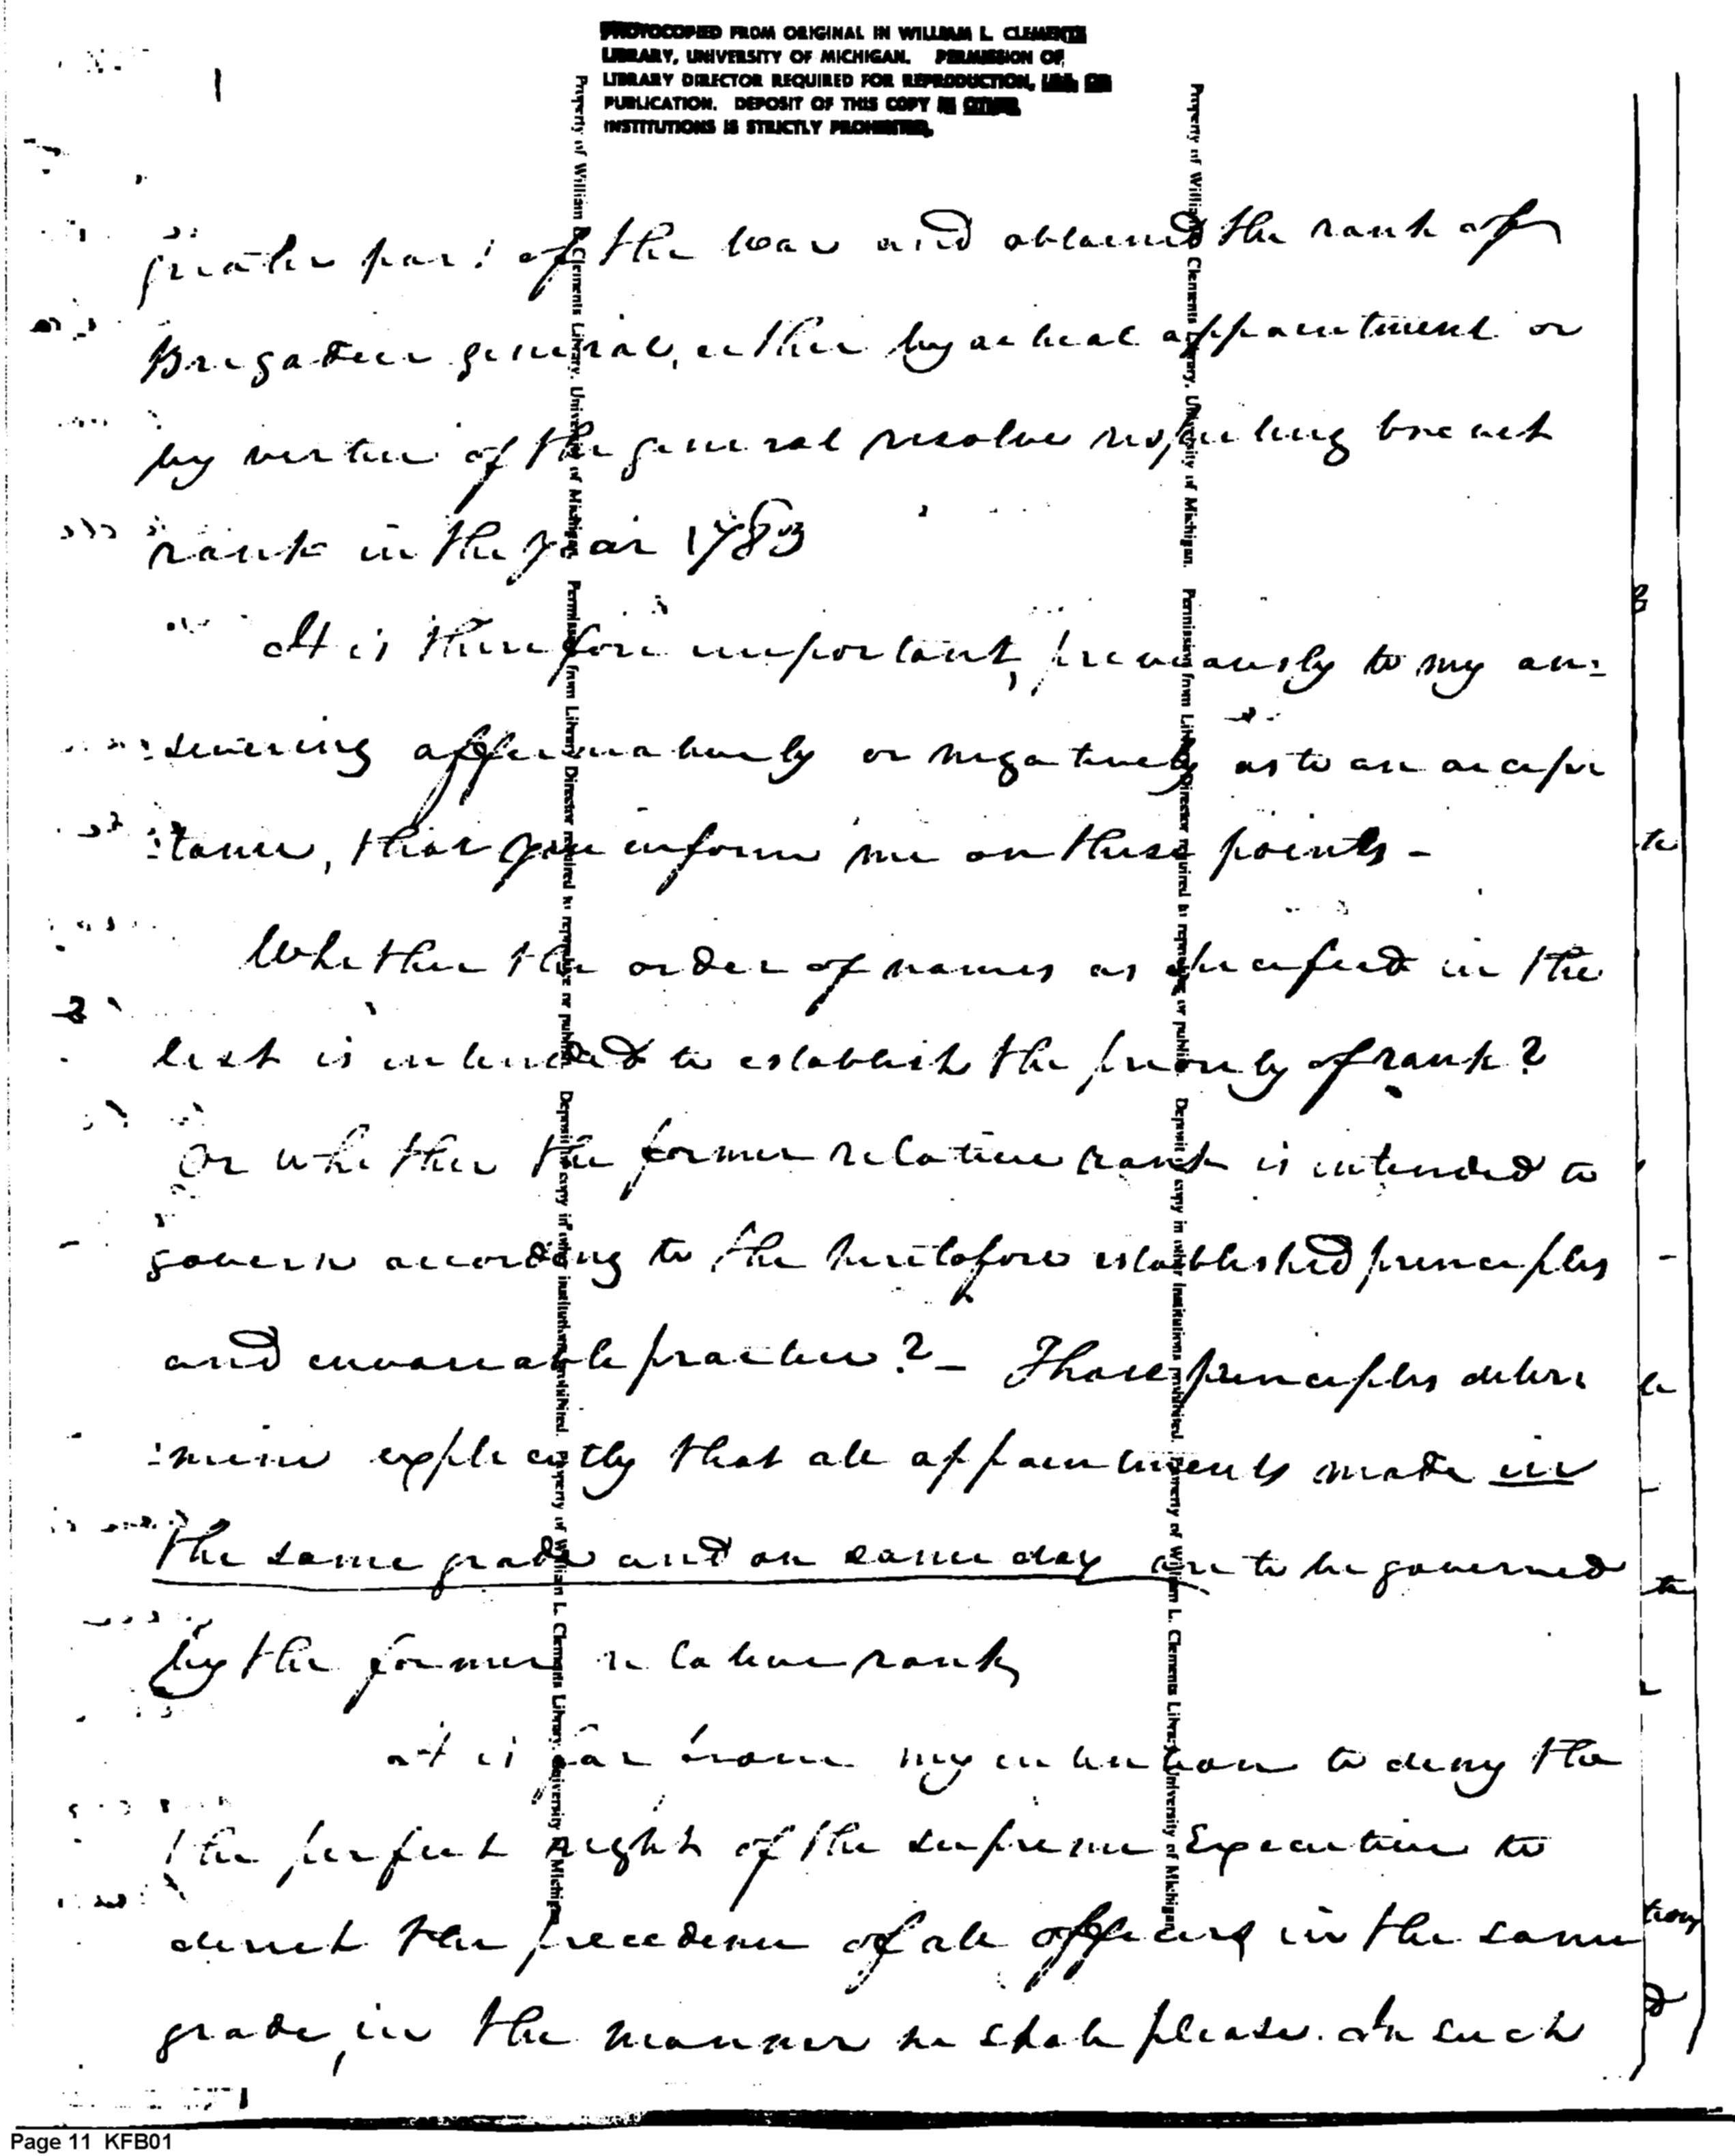 PHOTOCOPIED FROM ORIGINAL IN WILLIAM L. CLEMENTS
LIBRARY, UNIVERSITY OF MICHIGAN. PERMISSION OF
LIBRARY DIRECTOR REQUIRED FOR REPRODUCTION, USE OR
PUBLICATION. DEPOSIT OF THIS COPY IN OTHER
INSTITUTIONS IS STRICTLY PROHIBITED.
greater part of the war and obtained the rank of
Brigadier general, either by actual appointment or
by virtue of the general resolve respecting brevet
rank in the year 1783
It is therefore important, previously to my an=
=swering affirmatively or negatively as to an accep
=tance, that you inform me on these points -
Whether the order of names as specified in the
list is intended to establish the priority of rank?
Or whether the former relative rank is intended to
govern according to the heretofore established principles
and invariable practice? - Those principles deter
=mine explicitly that all appointments made in
the same grade and on same day are to be governed
by the former relative rank
It is far from my intention to deny the
the perfect right of the supreme Executive to
direct the precedence of all officers in the same
grade, in the manner he shall please. In such
Property of William L. Clements Library, University of Michigan. Permission from Library Director required to reproduce or publish. Deposit of copy in other institutions prohibited. Property of William L. Clements Library, University of Michigan
Property of William L. Clements Library, University of Michigan. Permission from Library Director required to reproduce or publish. Deposit of copy in other institutions prohibited. Property of William L. Clements Library, University of Michigan
Page 11 KFB01